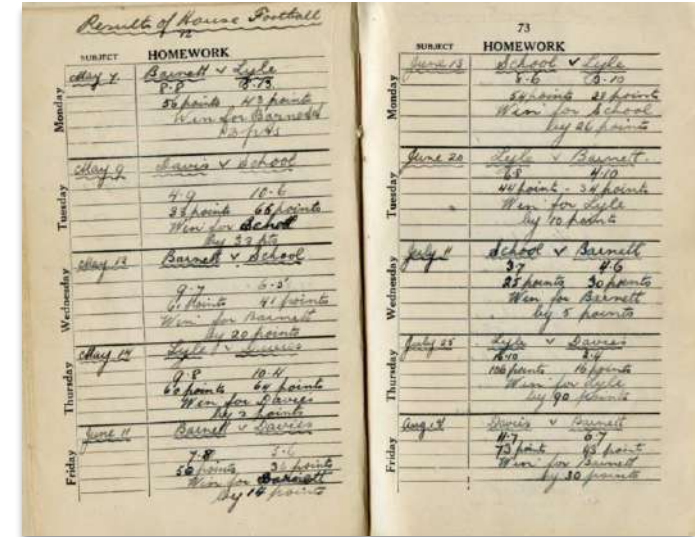 Results of House Football
SUBJECT HOMEWORK
Monday
May 7 Barnett v Lyle
8.8 3.13
56 points 43 points
Win for Barnett
13 pts
Tuesday
May 9 Davis v School
4.9 10.6
33 points 66 points
Win for School
By 33 pts
Wednesday
May 13 Barnett v School
9.7 6.5
61 Points 41 points
Win for Barnett
By 20 points
Thursday
May 14 Lyle v Davies
9.8 10.4
60 points 64 points
Win for Davies
By points
Friday
June 11 Barnett v Davies
7.8 5.6
50 points 36 points
Win for Barnett
By 14 points
73
SUBJECT HOMEWORK
Monday
June 13 School v Lyle
8.6 3.10
54 points 28 points
Win for School
by 26 points
Tuesday
June 20 Lyle v Barnett
6.8 4.10
44 points - 34 points
Win for Lyle
by 10 points
Wednesday
July 11 School v Barnett
3.7 4.6
25 points 30 points
Win for Barnett
by 5 points
Thursday
July 25 Lyle v Davies
16.10 2.4
106 points 16 points
Win for Lyle
by 90 points
Friday
Aug Davis v Barnett
11.7 6.7
73 point 43 point
Win for Barnett
by 30 points